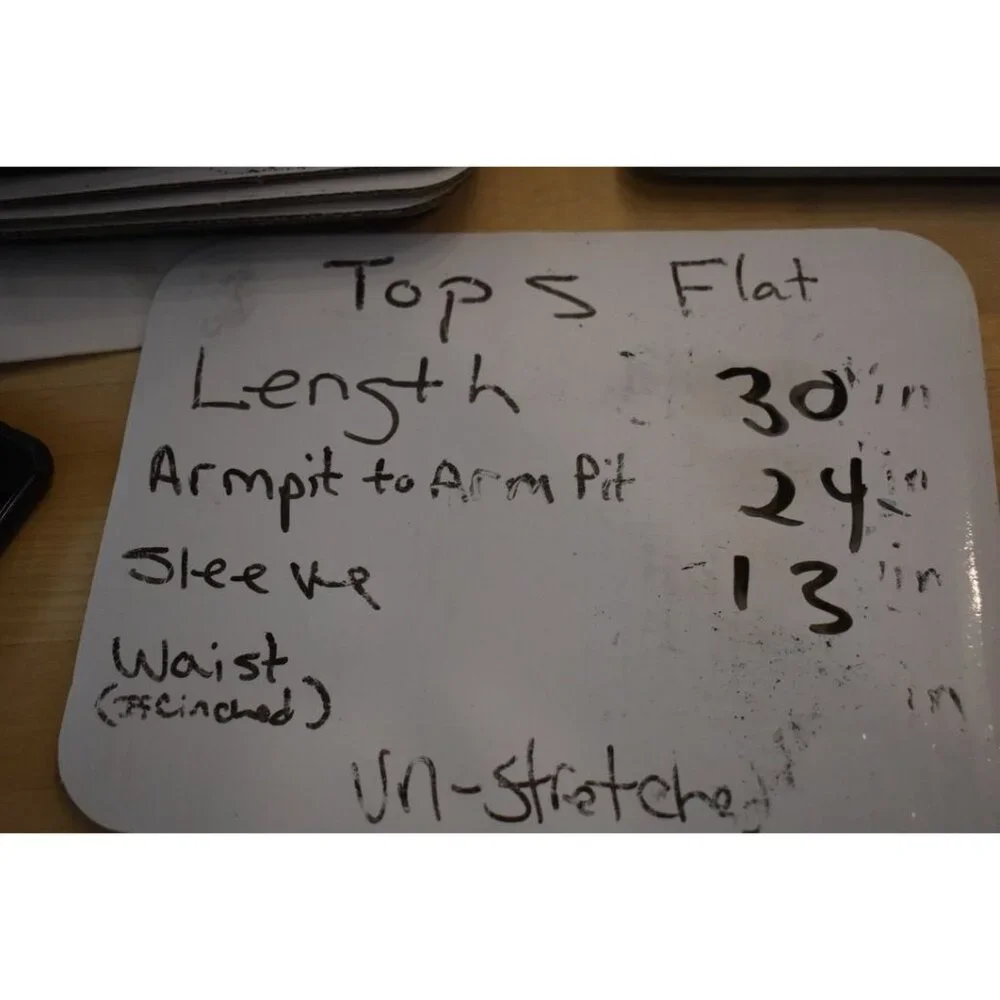 Tops Flat
Length 30 in
Armpit to Arm Pit 24 in
Sleeve 13 in
Waist
(If Cinched) in
Un-Stretched